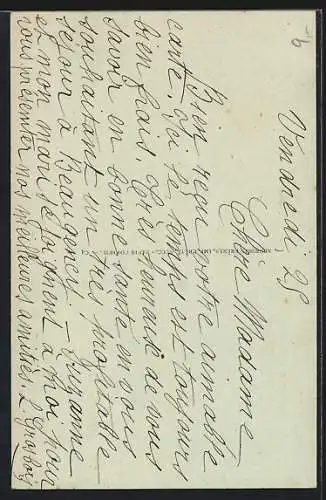 Vendredi 25
Chère Madame
Bien reçu votre aimable
carte. Ici le temps est toujours
bien frais. Très heureuse de vous
savoir en bonne santé en vous
souhaitant un très profitable
séjour à Beaugency. Suzanne
et mon mari se joignent à moi pour
vous présenter nos meilleures amitiés.